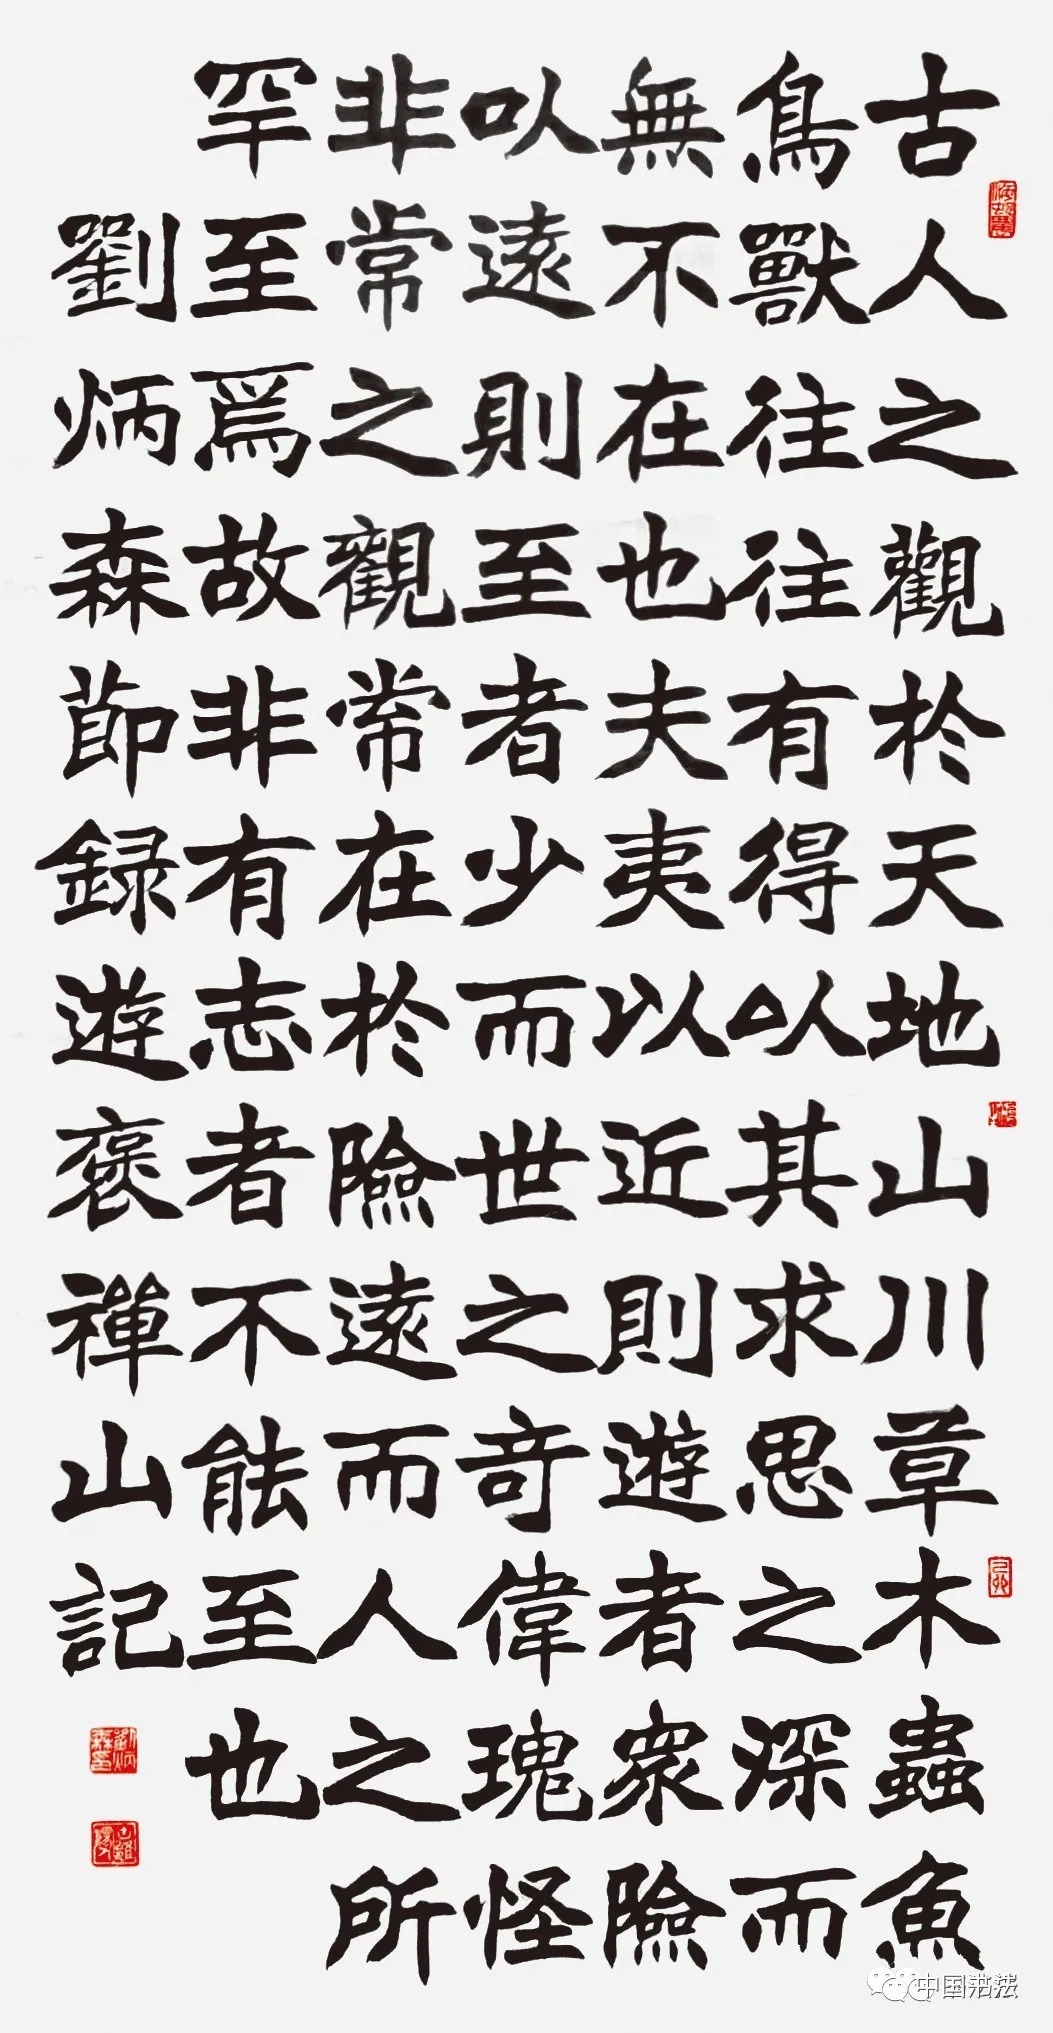 古人之觀於天地山川草木蟲魚
鳥獸往往有得以其求思之深而
無不在也夫夷以近則遊者眾險
以遠則至者少而世之奇偉瑰怪
非常之觀常在於險遠而人之所
罕至焉故非有志者不能至也
劉炳森節録遊褒禪山記
劉炳森印
中国书法